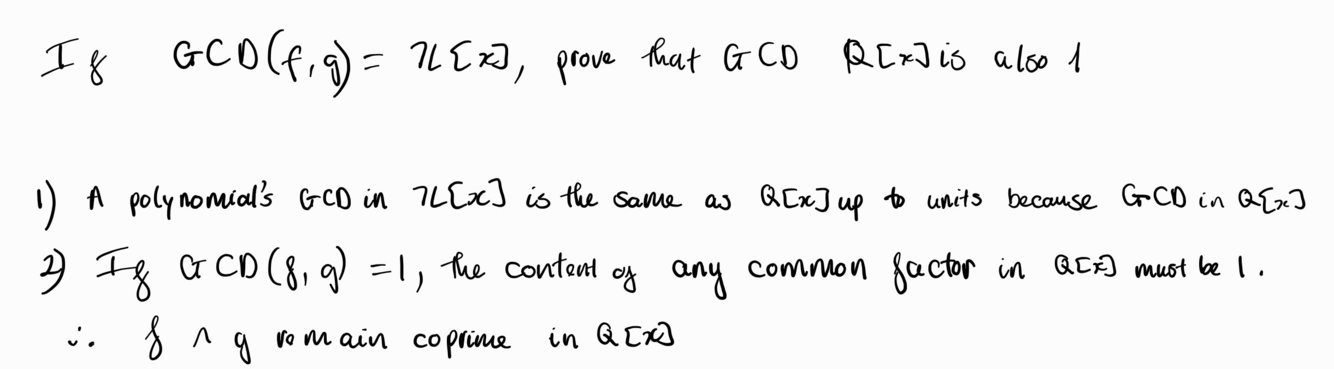 If GCD(f,g) = ℤ[x], prove that GCD ℚ[x] is also 1
1) A polynomial's GCD in ℤ[x] is the same as ℚ[x] up to units because GCD in ℚ[x]
2) If GCD(f,g) = 1, the content of any common factor in ℚ[x] must be 1.
∴ f ∧ g remain coprime in ℚ[x]